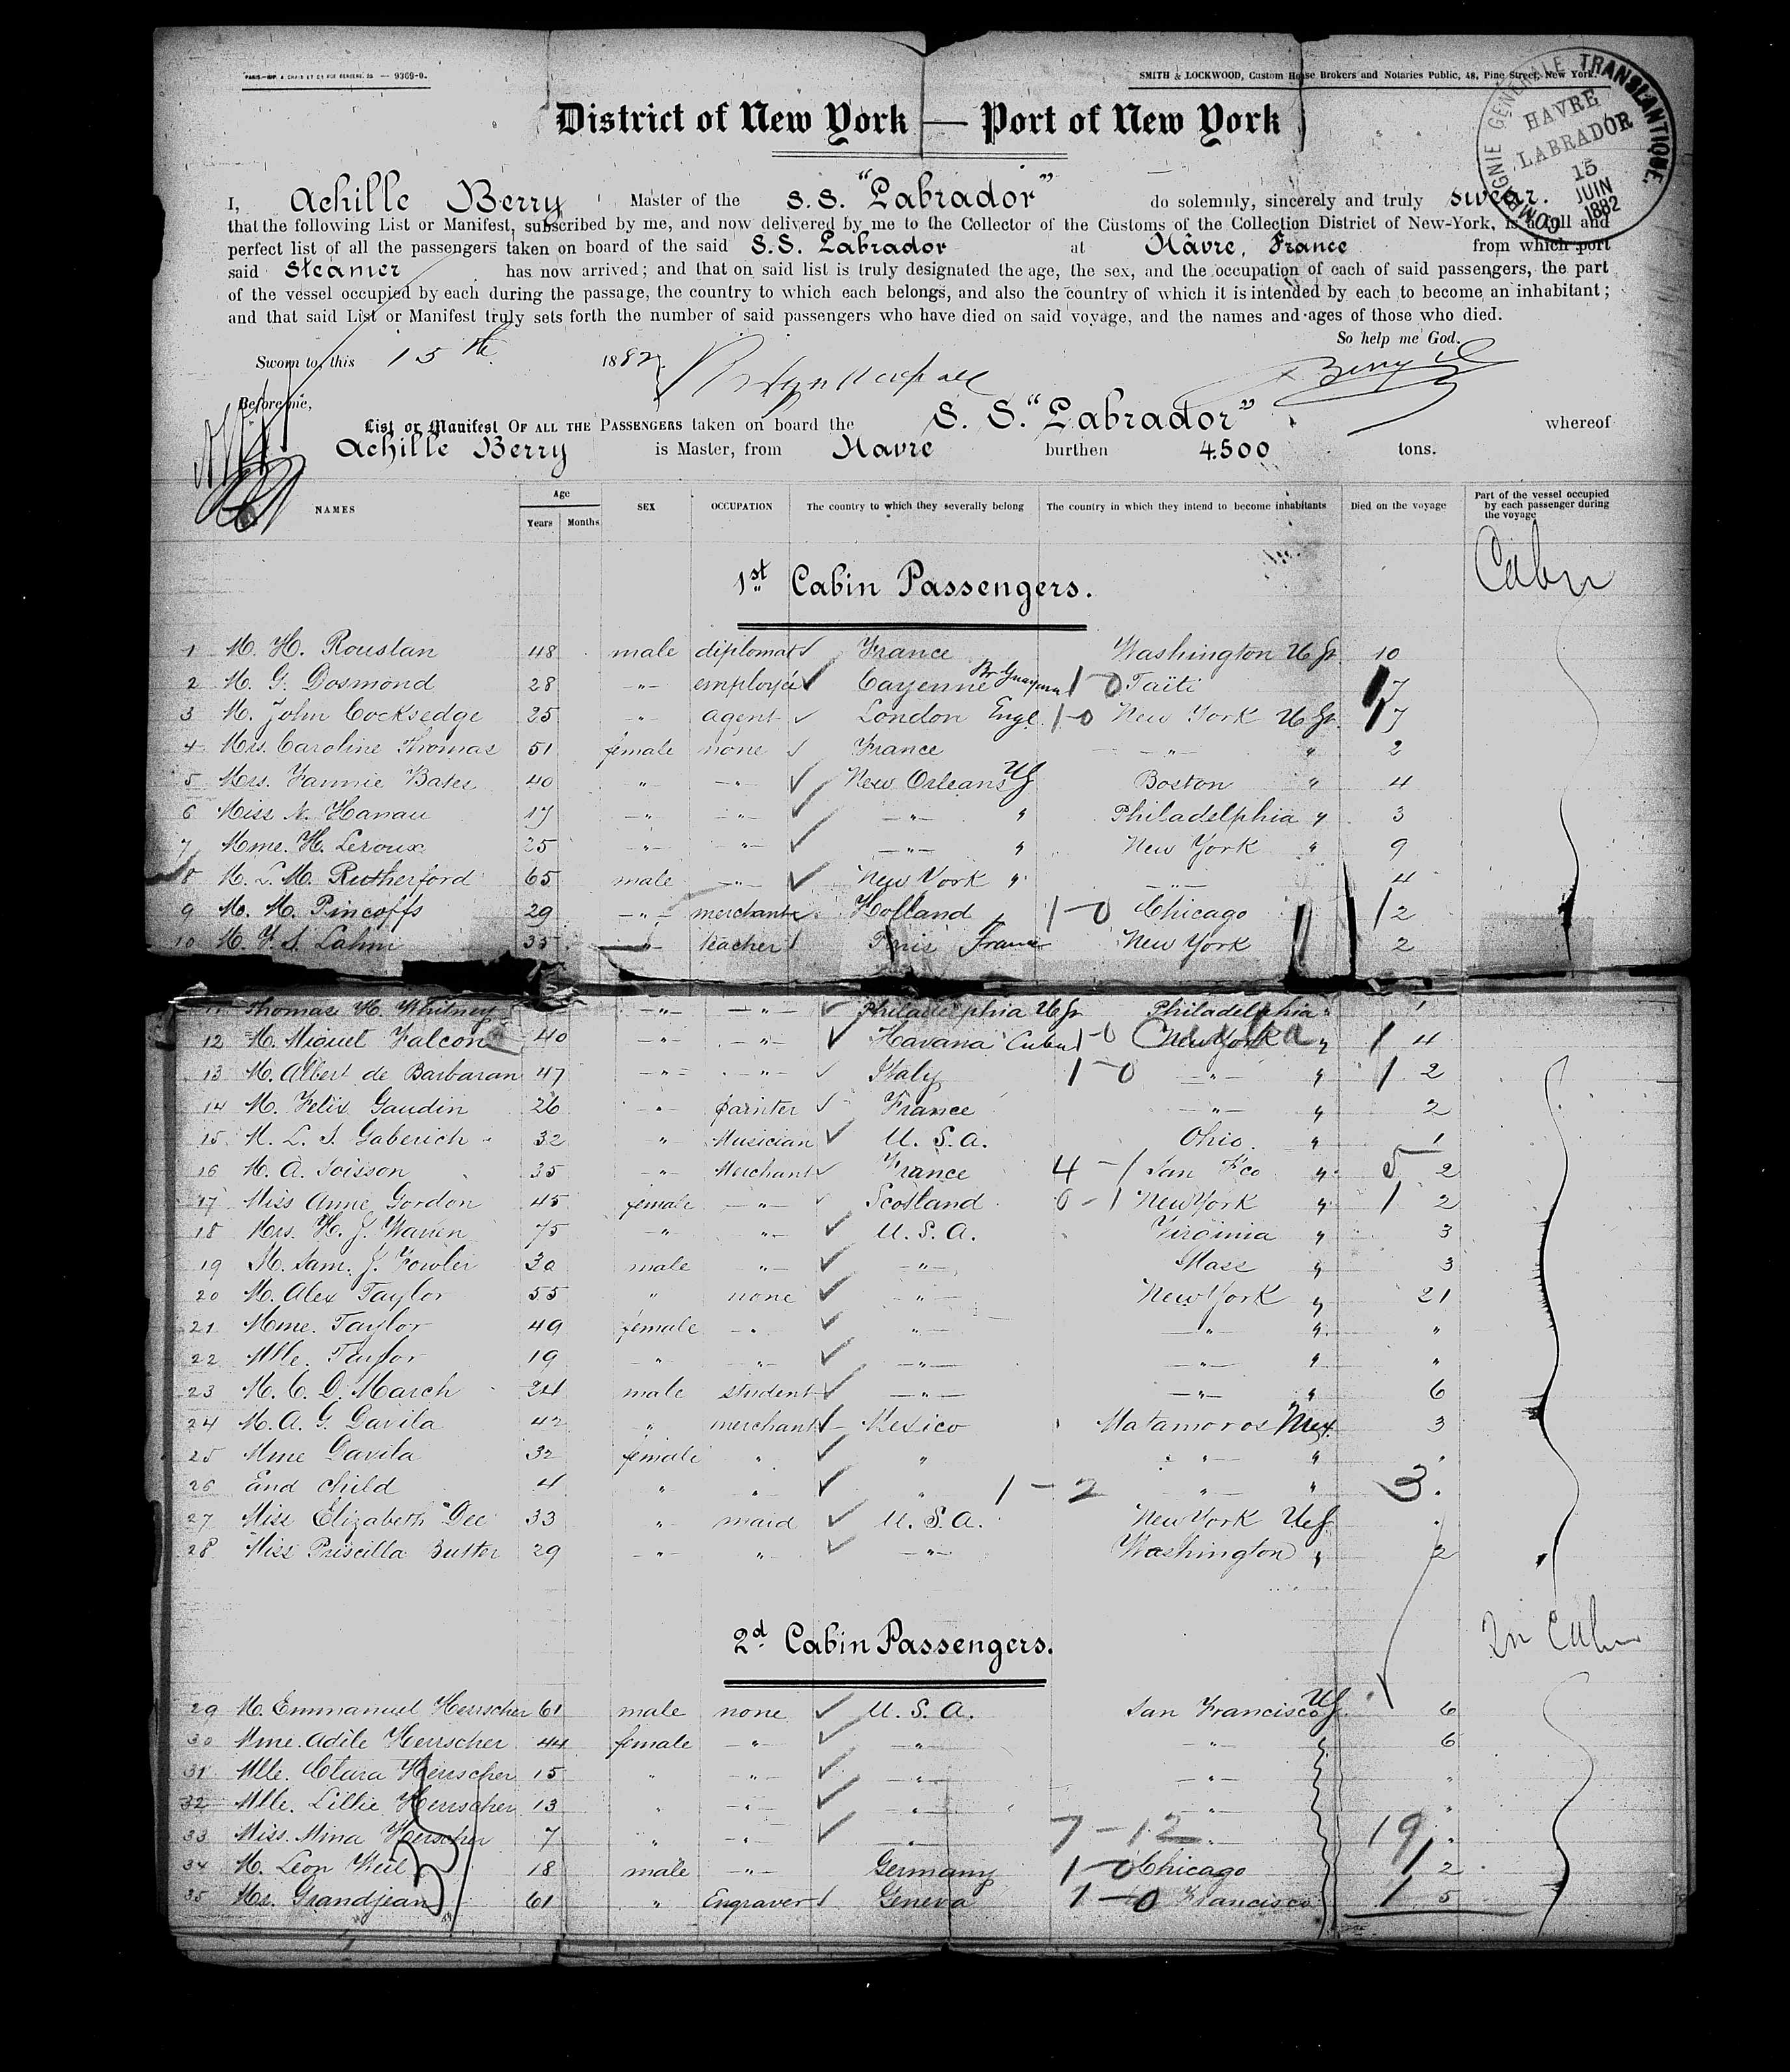 PARIS.—IMP. A. CHAIX ET Cie RUE BERGERE, 20. — 9369-0.
SMITH & LOCKWOOD, Custom House Brokers and Notaries Public, 48, Pine Street, New York.
COMPAGNIE GENERALE TRANSLANTIQUE.
HAVRE
LABRADOR
15
JUIN
1882
District of New York — Port of New York
I, Achille Berry Master of the S.S. "Labrador" do solemnly, sincerely and truly swear.
that the following List or Manifest, subscribed by me, and now delivered by me to the Collector of the Customs of the Collection District of New-York, is a full and
perfect list of all the passengers taken on board of the said S.S. Labrador at Hâvre, France from which port
said Steamer has now arrived; and that on said list is truly designated the age, the sex, and the occupation of each of said passengers, the part
of the vessel occupied by each during the passage, the country to which each belongs, and also the country of which it is intended by each to become an inhabitant;
and that said List or Manifest truly sets forth the number of said passengers who have died on said voyage, and the names and ages of those who died.
So help me God.
Sworn to, this 15th 1882 Berry
Before me,
List or Manifest OF ALL THE PASSENGERS taken on board the S. S. "Labrador" whereof
Achille Berry is Master, from Havre burthen 4.500 tons.
NAMES Age Years Months SEX OCCUPATION The country to which they severally belong The country in which they intend to become inhabitants Died on the voyage Part of the vessel occupied by each passenger during the voyage
1st Cabin Passengers. Cabin
1 M. H. Roustan 48 male diplomat France Washington US. 10
2 M. G. Dosmond 28 -"- employé Cayenne 1-0 Taïti 1 7
3 M. John Cocksedge 25 -"- agent London Engl. 1-0 New York US. 1 7
4 Mrs. Caroline Thomas 51 female none France -"- " 2
5 Mrs. Fannie Bates 40 " -"- New Orleans US Boston " 4
6 Miss N. Hanau 17 -"- -"- -"- " Philadelphia " 3
7 Mme. H. Leroux 25 -"- -"- -"- " New York " 9
8 M. L. M. Rutherford 65 male -"- New York " -"- 4
9 M. M. Pincoffs 29 -"- merchant Holland 1-0 Chicago 1 2
10 M. F. S. Lahm 35 -"- teacher Paris France New York 2
11 Thomas H. Whitney -"- -"- Philadelphia US. Philadelphia " 1
12 M. Miguel Falcon 40 -"- -"- Havana Cuba 1-0 New York Cuba " 1 4
13 M. Albert de Barbaran 47 -"- -"- Italy 1-0 -"- " 1 2
14 M. Felix Gaudin 26 -"- painter France -"- " 2
15 M. L. S. Gaberich 32 " Musician U. S. A. Ohio " 1
16 M. A. Soisson 35 -"- Merchant France 4-1 San F'co " 5 2
17 Miss Anne Gordon 45 female -"- Scotland 0-1 New York " 1 2
18 Mrs. H. J. Warren 75 -"- -"- U. S. A. Virginia " 3
19 M. Sam. J. Fowler 30 male "- -"- Mass " 3
20 M. Alex Taylor 55 " none -"- New York " 21
21 Mme. Taylor 49 female -"- -"- -"- " "
22 Mlle. Taylor 19 -"- -"- -"- -"- " "
23 M. C. D. March 24 male student -"- -"- " 6
24 M. A. G. Davila 42 " merchant Mexico Matamoros Mex. 3
25 Mme Davila 32 female " " -"- " "
26 and child 4 " " " 1-2 -"- " 3.
27 Miss Elizabeth Dee 33 " maid U. S. A. New York US "
28 Miss Priscilla Butter 29 -"- " -"- Washington " 2
2d Cabin Passengers. 2n Cabin
29 M. Emmanuel Herrscher 61 male none U. S. A. San Francisco US. 6
30 Mme. Adile Herrscher 44 female -"- -"- -"- " 6
31 Mlle. Clara Herrscher 15 " -"- -"- -"- "
32 Mlle. Lillie Herrscher 13 " -"- -"- " "
33 Miss. Mina Herscher 7 " -"- -"- 7-12 -"- 19 "
34 M. Leon Weil 18 male -"- Germany 1-0 Chicago 1 2
35 Mr. Grandjean 61 " Engraver Geneva 1-0 Francisco 1 5